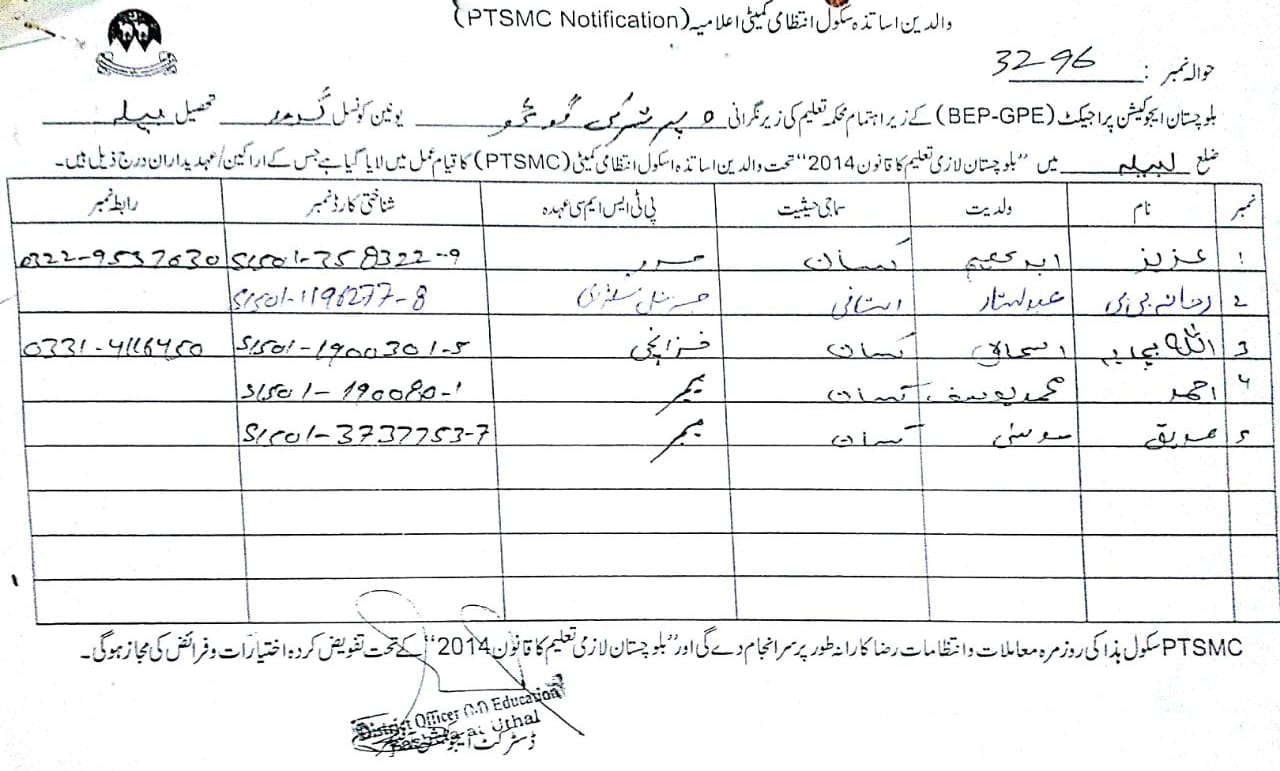 والدین اساتذہ سکول انتظامی کمیٹی اعلامیہ (PTSMC Notification)
حوالہ نمبر : 3296
بلوچستان ایجوکیشن پراجیکٹ (BEP-GPE) کے زیر اہتمام محکمہ تعلیم کی زیر نگرانی گوٹھ یونین کونسل تحصیل بیلہ
ضلع لسبیلہ میں "بلوچستان لازمی تعلیم کا قانون 2014" تحت والدین اساتذہ اسکول انتظامی کمیٹی (PTSMC) کا قیام عمل میں لایا گیا ہے جس کے اراکین/عہدیداران درج ذیل ہیں۔
نمبر نام ولدیت سماجی حیثیت پی ٹی ایس ایم سی عہدہ شناختی کارڈ نمبر رابطہ نمبر
1 عزیز ابراھیم کسان صدر 51501-358322-9 0322-9537030
2 عبدالستار استانی جنرل سکریٹری 51501-1196277-8
3 اللہ بچایہ اسحاق کسان خزانچی 51501-1900301-5 0331-4116450
4 احمد محمد یوسف کسان ممبر 51501-190080-1
5 صدیق موسیٰ کسان ممبر 51501-3737753-7
PTSMC سکول ہذا کی روزمرہ معاملات و انتظامات رضا کارانہ طور پر سرانجام دے گی اور "بلوچستان لازمی تعلیم کا قانون 2014" کے تحت تفویض کردہ اختیارات و فرائض کی مجاز ہوگی۔
District Officer (M) Education
Lasbela at Uthal